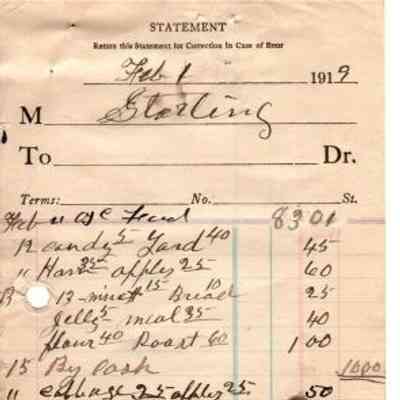 STATEMENT
Return this Statement for Correction in Case of Error
Feb 1 1919
M Starling
To Dr.
Terms: No. St.
Feb 11 a/c 83 01
12 candy 5 Lard 40 45
" apples 25 60
13 - 15 Bread 10 25
Jelly 5 meal 35 40
flour 40 Roast 60 1 00
15 By Cash 1000
" cabbage 25 apples 25 50